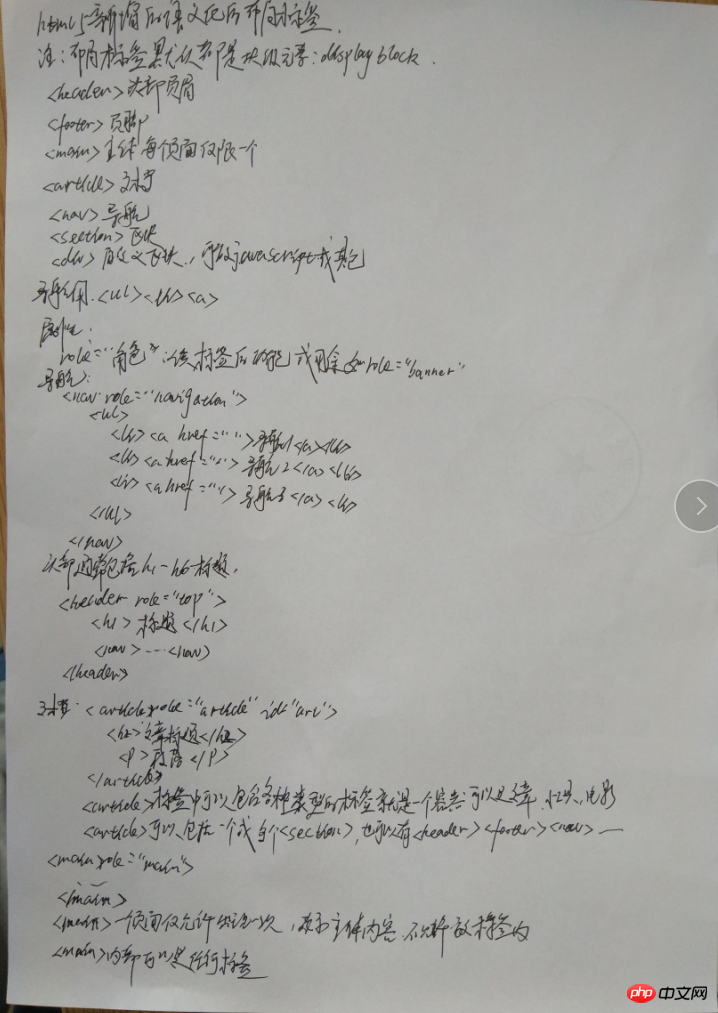 html5新增的语义化后布局标签.
注:布局标签默认都是块级元素:display block.
<header>头部页眉
<footer>页脚
<main>主体 每个页面仅限一个
<article>文档
<nav>导航
<section>区块
<div>自定义区块,可做javascript或其它
导航用.<ul><li><a>
属性:
role="角色":该标签的功能 或用途 如role="banner"
导航:
<nav role="navigation">
<ul>
<li><a href="">导航1</a><li>
<li><a href="">导航2</a><li>
<li><a href="">导航3</a><li>
</ul>
</nav>
头部通常包括h1-h6标题.
<header role="top">
<h1>标题</h1>
<nav>...<nav>
<header>
文档:<article role="article" id="art">
<h2>文章标题</h2>
<p>段落</p>
</article>
<article>标签中可以包含各种类型的标签 就是一个容器 可以是文章、电影
<article>可以包括一个或多个<section>,也可以有<header><footer><nav>—
<main role="main">
<main>
<main>一个页面仅允许出现一次,表示主体内容.
<main>内部可以是任何标签
php 中文网